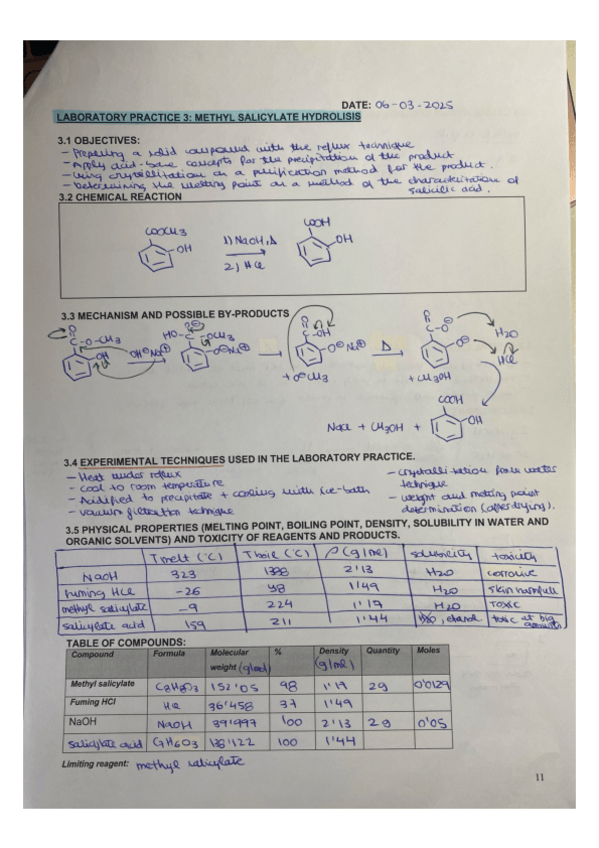 DATE: 06-03-2025
LABORATORY PRACTICE 3: METHYL SALICYLATE HYDROLISIS
3.1 OBJECTIVES:
- Preparing a solid compound with the reflux technique
- Apply acid-base concepts for the precipitation of the product
- Using crystallitation as a purification method for the product.
- Determining the melting point as a method of the characteritation of
salicilic acid.
3.2 CHEMICAL REACTION
COOCH3
OH
1) NaOH, Δ
2) HCl
COOH
OH
3.3 MECHANISM AND POSSIBLE BY-PRODUCTS
O
C
O-CH3
OH
OH⊖Na⊕
HO-C-OCH3
O⊖Na⊕
O
C-OH
O⊖Na⊕
+ O⊖CH3
Δ
O
C-O⊖
O⊖
+ CH3OH
H2O
HCl
NaCl + CH3OH +
COOH
OH
3.4 EXPERIMENTAL TECHNIQUES USED IN THE LABORATORY PRACTICE.
- Heat under reflux
- cool to room temperature
- Acidified to precipitate + cooling with ice-bath
- vacuum filtration technique
- crystallitation from water
technique
- weight and melting point
determination (after drying).
3.5 PHYSICAL PROPERTIES (MELTING POINT, BOILING POINT, DENSITY, SOLUBILITY IN WATER AND
ORGANIC SOLVENTS) AND TOXICITY OF REAGENTS AND PRODUCTS.
T melt (°C) T boil (°C) ρ (g/ml) solubility toxicity
NaOH 323 1388 2'13 H2O corrosive
fuming HCl -26 48 1'49 H2O skin harmfull
methyl salicylate -9 224 1'19 H2O TOXIC
salicylate acid 159 211 1'44 ethanol toxic at big
amounts
TABLE OF COMPOUNDS:
Compound Formula Molecular weight (g/mol) % Density (g/mL) Quantity Moles
Methyl salicylate C8H8O3 152'05 98 1'19 2g 0'0129
Fuming HCl HCl 36'458 37 1'49
NaOH NaOH 39'997 100 2'13 2g 0'05
salicylate acid C7H6O3 138'122 100 1'44
Limiting reagent: methyl salicylate
11